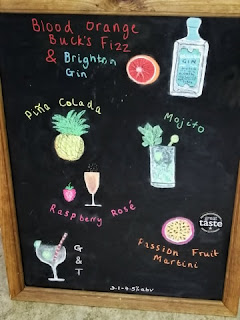 Blood Orange
Buck's Fizz
& Brighton
Gin
GIN
Piña Colada
Mojito
Raspberry Rosé
great
taste
Passion Fruit
Martini
G
&
T